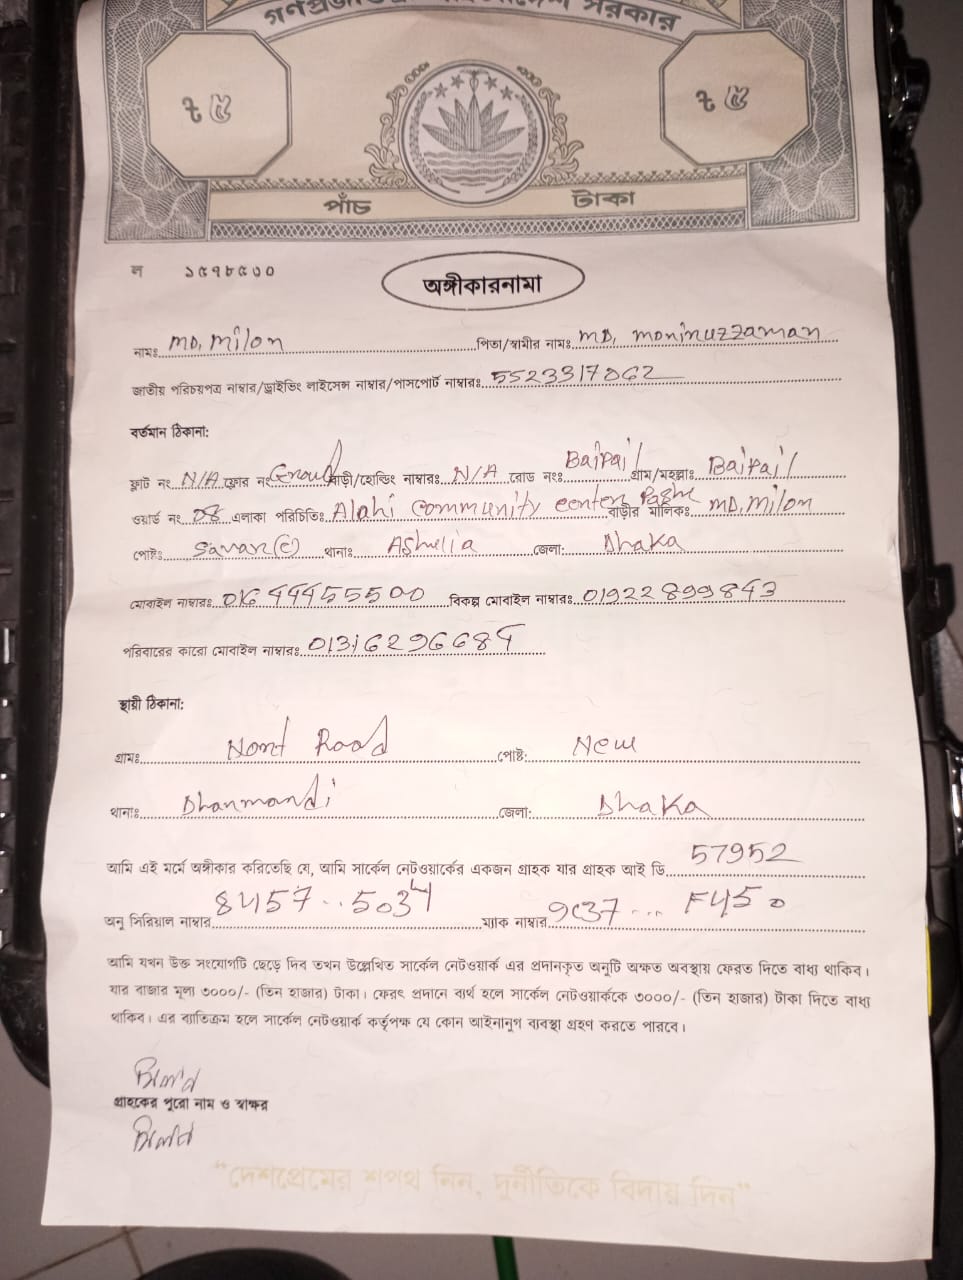 সরকার
৳ ৫ ৳ ৫
পাঁচ টাকা
ল ১৫৭৮৫৩০
অঙ্গীকারনামা
নামঃ MD, Milon পিতা/স্বামীর নামঃ MD, Moninuzzaman
জাতীয় পরিচয়পত্র নাম্বার/ড্রাইভিং লাইসেন্স নাম্বার/পাসপোর্ট নাম্বারঃ 5523317062
বর্তমান ঠিকানা:
ফ্লাট নং N/A ফ্লোর নং বাড়ী/হোল্ডিং নাম্বারঃ N/A রোড নংঃ Baipail গ্রাম/মহল্লাঃ Baipail
ওয়ার্ড নং 08 এলাকা পরিচিতিঃ Alahi Community center Pashe বাড়ীর মালিকঃ MD, Milon
পোষ্ট: Savar (C) থানাঃ Ashulia জেলা: Dhaka
মোবাইল নাম্বারঃ 01644455500 বিকল্প মোবাইল নাম্বারঃ 01922899843
পরিবারের কারো মোবাইল নাম্বারঃ 01316296684
স্থায়ী ঠিকানা:
গ্রামঃ Road পোষ্ট: New
থানাঃ Dhanmondi জেলা: Dhaka
আমি এই মর্মে অঙ্গীকার করিতেছি যে, আমি সার্কেল নেটওয়ার্কের একজন গ্রাহক যার গ্রাহক আই ডি 57952
অনু সিরিয়াল নাম্বার 8457..5034 ম্যাক নাম্বার 9C37... F450
আমি যখন উক্ত সংযোগটি ছেড়ে দিব তখন উল্লেখিত সার্কেল নেটওয়ার্ক এর প্রদানকৃত অনুটি অক্ষত অবস্থায় ফেরত দিতে বাধ্য থাকিব।
যার বাজার মূল্য ৩০০০/- (তিন হাজার) টাকা। ফেরৎ প্রদানে ব্যর্থ হলে সার্কেল নেটওয়ার্ককে ৩০০০/- (তিন হাজার) টাকা দিতে বাধ্য
থাকিব। এর ব্যতিক্রম হলে সার্কেল নেটওয়ার্ক কর্তৃপক্ষ যে কোন আইনানুগ ব্যবস্থা গ্রহণ করতে পারবে।
গ্রাহকের পুরো নাম ও স্বাক্ষর
"দেশপ্রেমের শপথ নিন, দুর্নীতিকে বিদায় দিন"